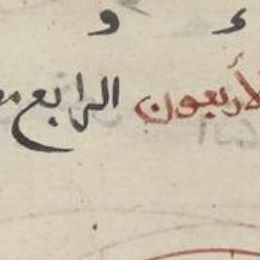 و ء
الأربعون الرابع